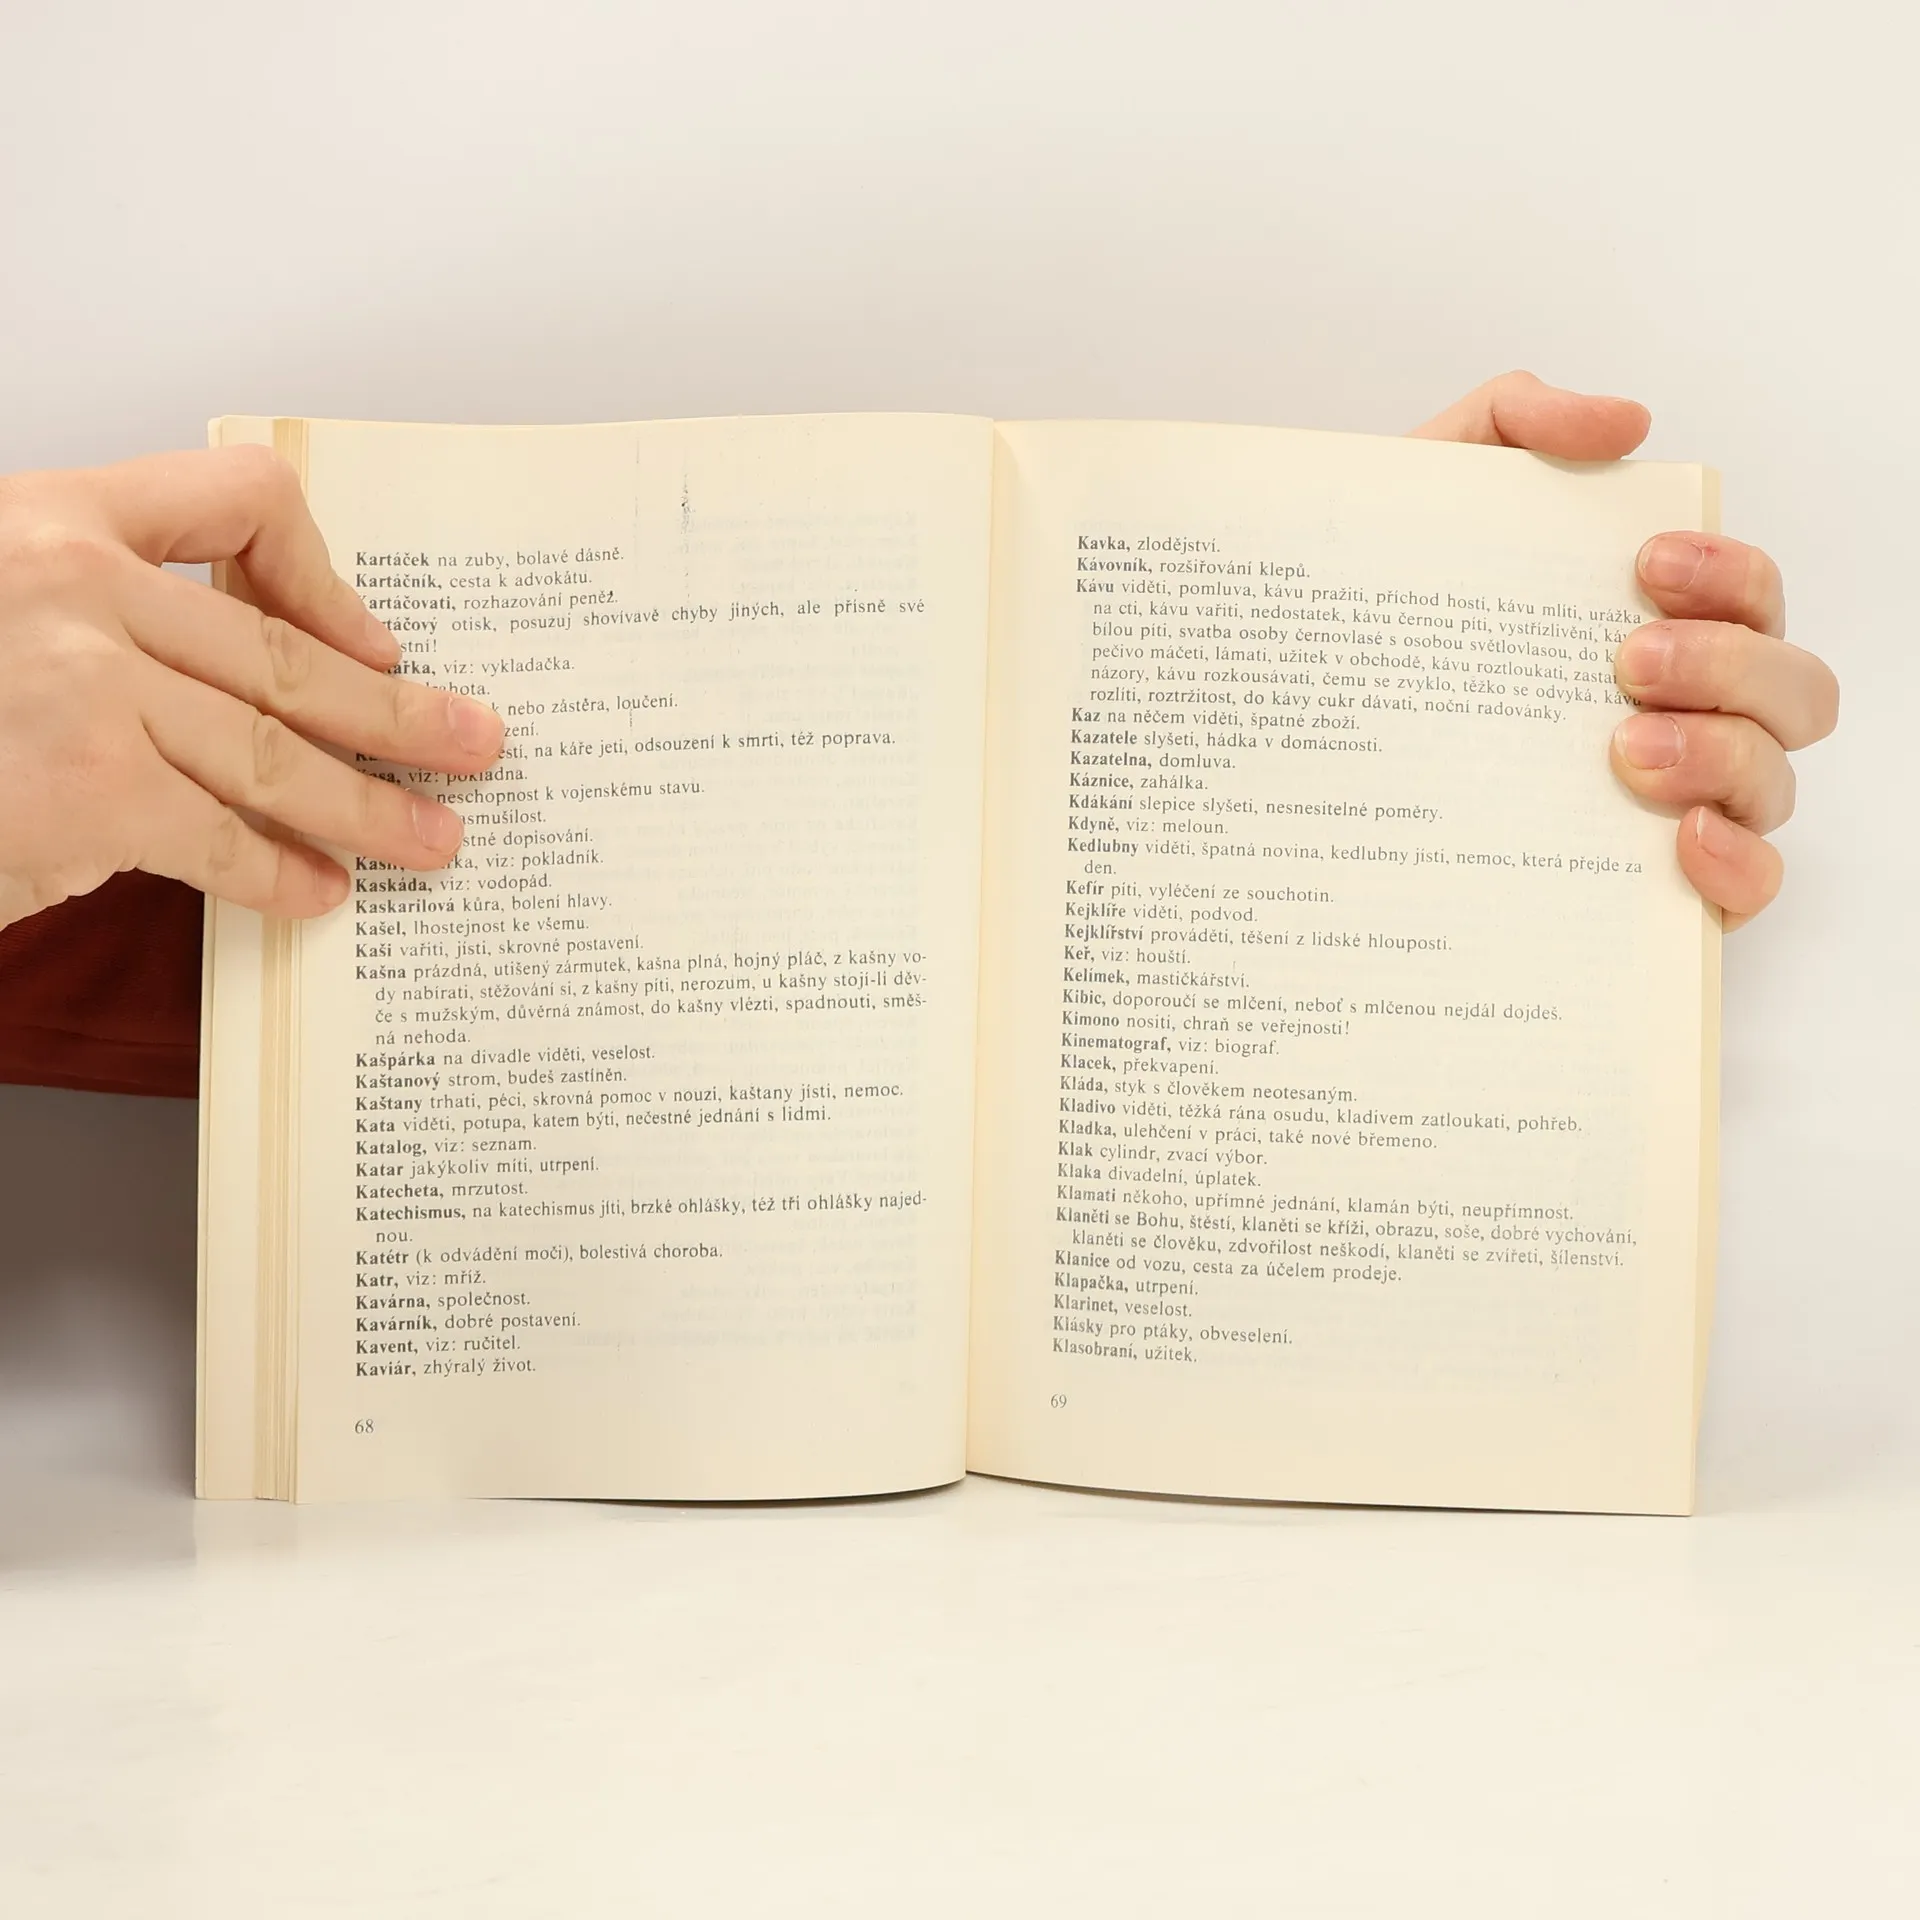 Kartáček na zuby, bolavé dásně.
Kartáčník, cesta k advokátu.
artáčovati, rozhazování peněz.
táčový otisk, posuzuj shovívavě chyby jiných, ale přísně své
stní!
ářka, viz: vykladačka.
hota.
k nebo zástěra, loučení.
zení.
estí, na káře jeti, odsouzení k smrti, též poprava.
Kasa, viz: pokladna.
neschopnost k vojenskému stavu.
asmušilost.
stné dopisování.
rka, viz: pokladník.
Kaskáda, viz: vodopád.
Kaskarilová kůra, bolení hlavy.
Kašel, lhostejnost ke všemu.
Kaši vařiti, jísti, skrovné postavení.
Kašna prázdná, utišený zármutek, kašna plná, hojný pláč, z kašny vo-
dy nabírati, stěžování si, z kašny píti, nerozum, u kašny stojí-li děv-
če s mužským, důvěrná známost, do kašny vlézti, spadnouti, směš-
ná nehoda.
Kašpárka na divadle viděti, veselost.
Kaštanový strom, budeš zastíněn.
Kaštany trhati, péci, skrovná pomoc v nouzi, kaštany jísti, nemoc.
Kata viděti, potupa, katem býti, nečestné jednání s lidmi.
Katalog, viz: seznam.
Katar jakýkoliv míti, utrpení.
Katecheta, mrzutost.
Katechismus, na katechismus jíti, brzké ohlášky, též tři ohlášky najed-
nou.
Katétr (k odvádění moči), bolestivá choroba.
Katr, viz: mříž.
Kavárna, společnost.
Kavárník, dobré postavení.
Kavent, viz: ručitel.
Kaviár, zhýralý život.
68
Kavka, zlodějství.
Kávovník, rozšiřování klepů.
Kávu viděti, pomluva, kávu pražiti, příchod hostí, kávu mlíti, urážka
na cti, kávu vařiti, nedostatek, kávu černou píti, vystřízlivění, káv
bílou píti, svatba osoby černovlasé s osobou světlovlasou, do k
pečivo máčeti, lámati, užitek v obchodě, kávu roztloukati, zasta
názory, kávu rozkousávati, čemu se zvyklo, těžko se odvyká, kávu
rozlíti, roztržitost, do kávy cukr dávati, noční radovánky.
Kaz na něčem viděti, špatné zboží.
Kazatele slyšeti, hádka v domácnosti.
Kazatelna, domluva.
Káznice, zahálka.
Kdákání slepice slyšeti, nesnesitelné poměry.
Kdyně, viz: meloun.
Kedlubny viděti, špatná novina, kedlubny jísti, nemoc, která přejde za
den.
Kefír píti, vyléčení ze souchotin.
Kejklíře viděti, podvod.
Kejklířství prováděti, těšení z lidské hlouposti.
Keř, viz: houští.
Kelímek, mastičkářství.
Kibic, doporoučí se mlčení, neboť s mlčenou nejdál dojdeš.
Kimono nositi, chraň se veřejnosti!
Kinematograf, viz: biograf.
Klacek, překvapení.
Kláda, styk s člověkem neotesaným.
Kladivo viděti, těžká rána osudu, kladivem zatloukati, pohřeb.
Kladka, ulehčení v práci, také nové břemeno.
Klak cylindr, zvací výbor.
Klaka divadelní, úplatek.
Klamati někoho, upřímné jednání, klamán býti, neupřímnost.
Klaněti se Bohu, štěstí, klaněti se kříži, obrazu, soše, dobré vychování,
klaněti se člověku, zdvořilost neškodí, klaněti se zvířeti, šílenství.
Klanice od vozu, cesta za účelem prodeje.
Klapačka, utrpení.
Klarinet, veselost.
Klásky pro ptáky, obveselení.
Klasobraní, užitek.
69